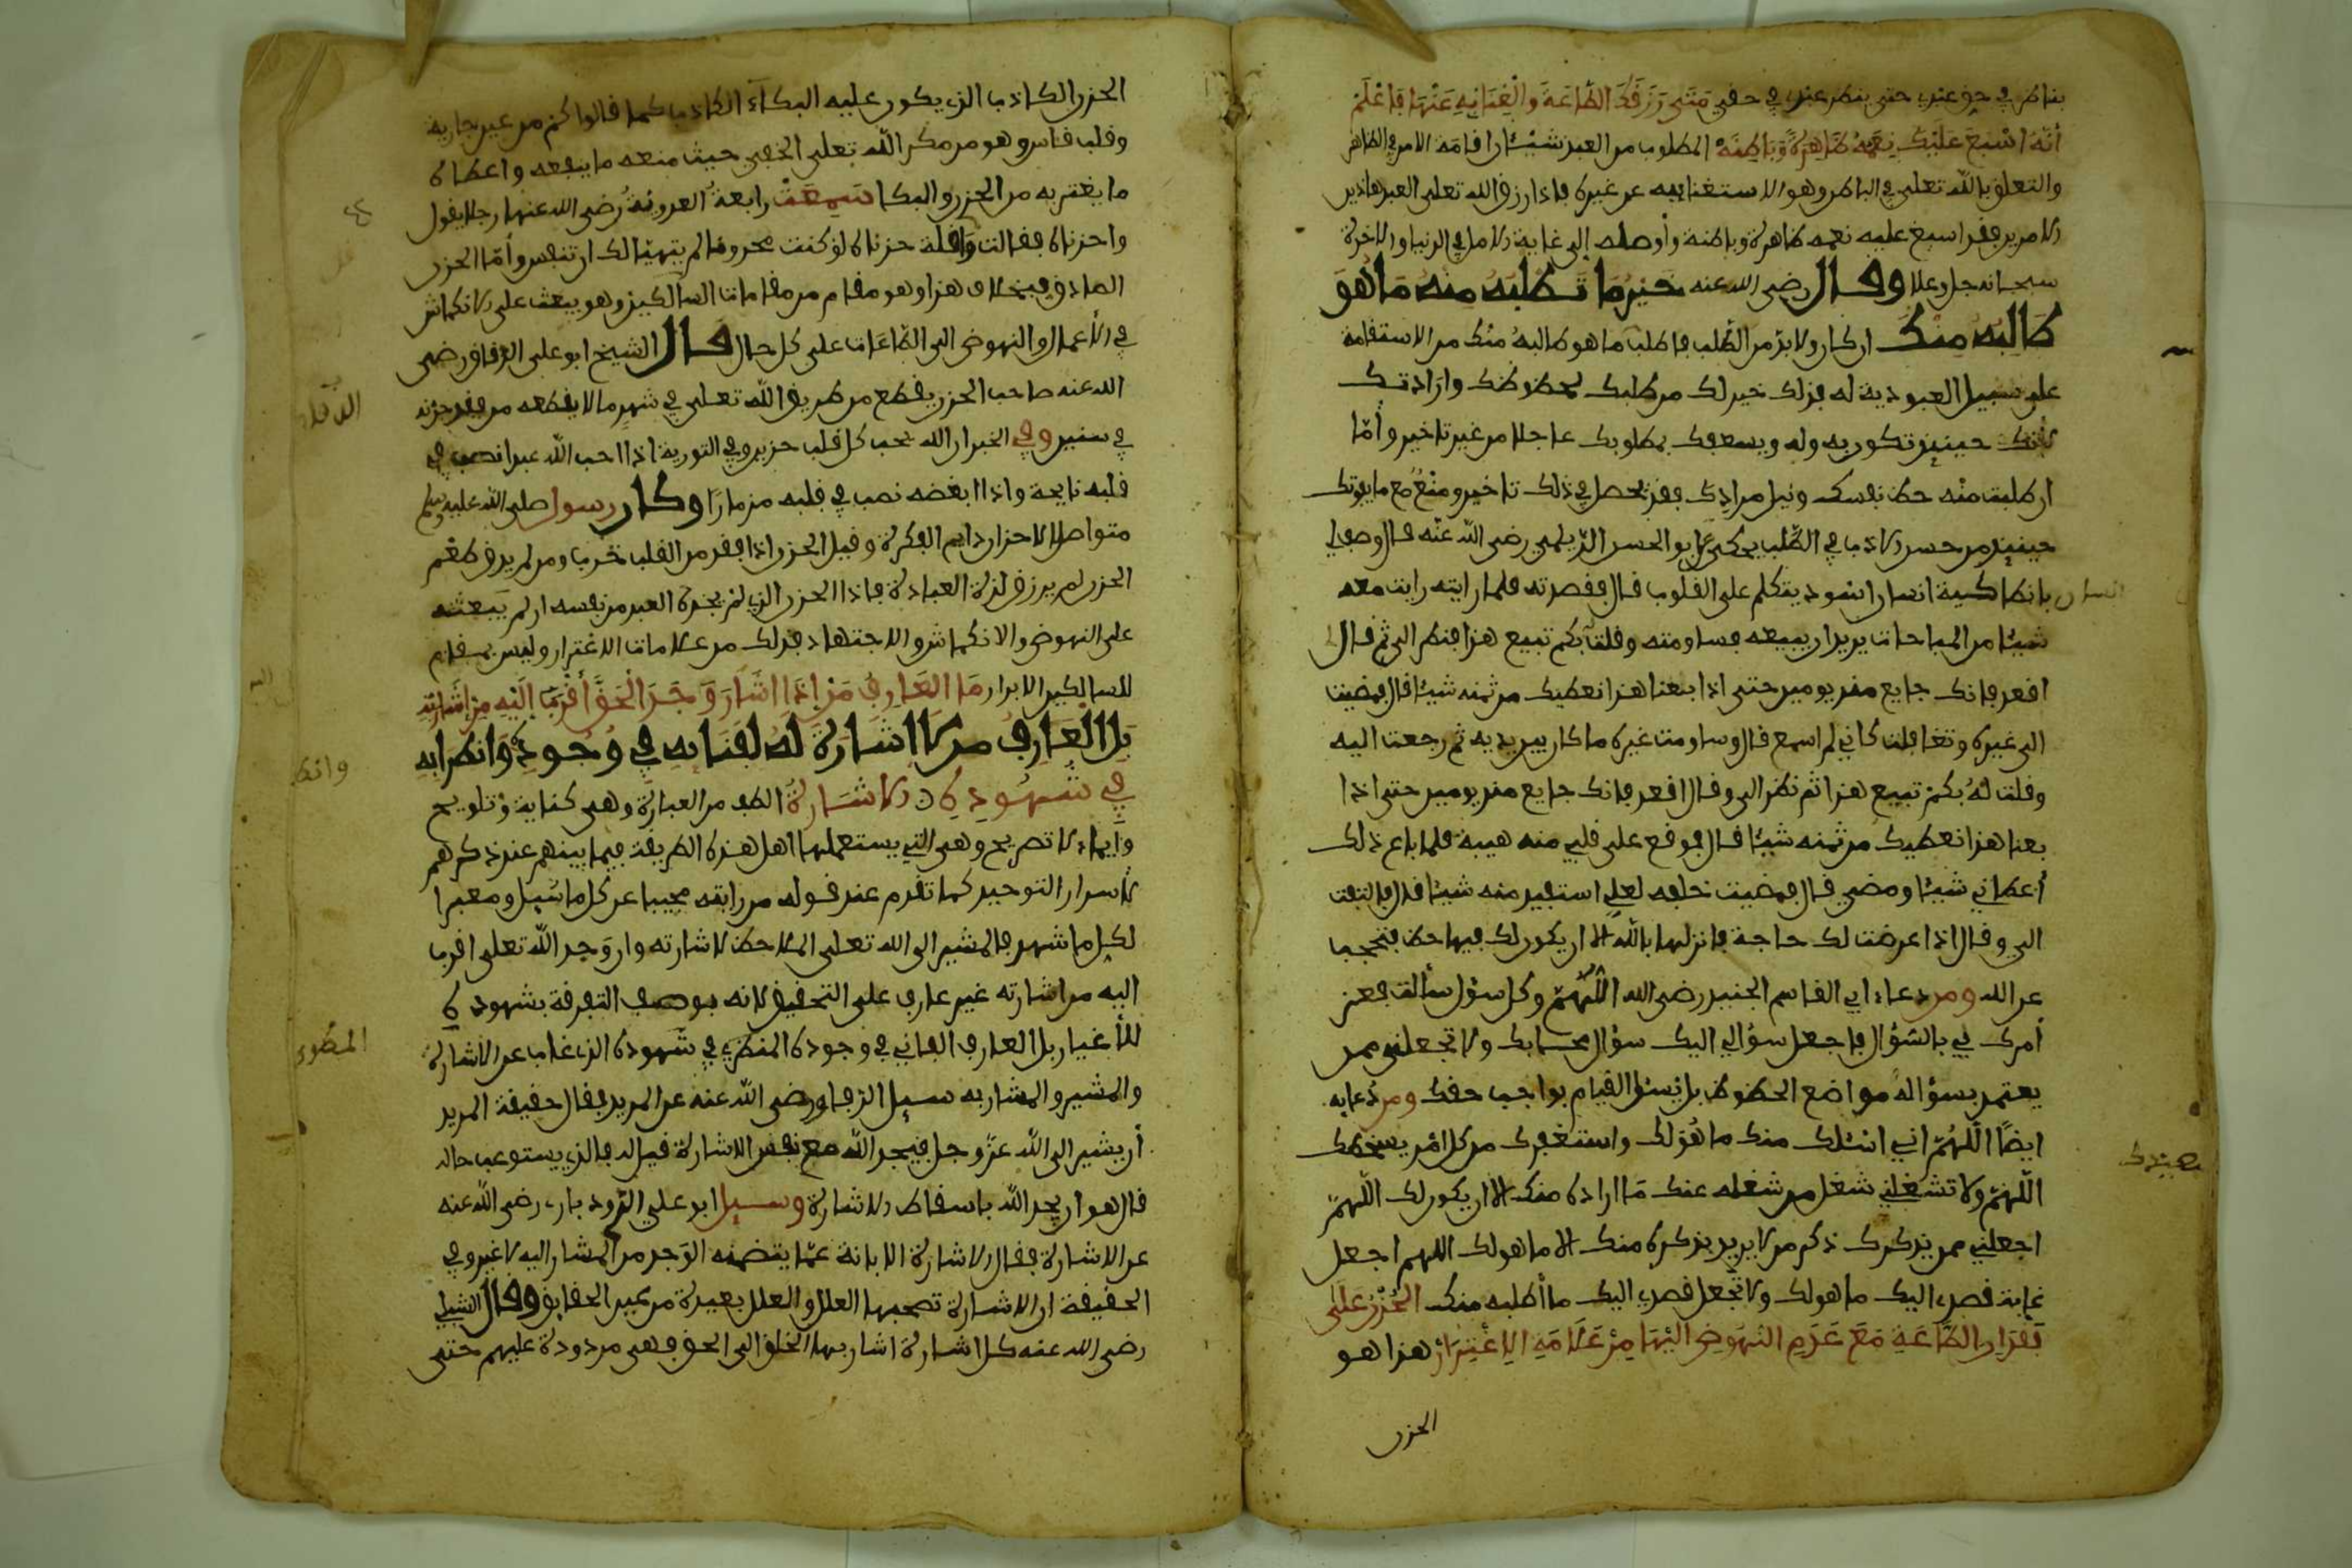 بناظر في حق عبدي حتى ينظر عبدي في حقي متى رزقك الطاعة والغنا به عنها فاعلم
أنه اسبغ عليك نعمه ظاهرة وباطنة المطلوب من العبد شيئان اقامة الامر في الظاهر
والتعلق بالله تعلى في الباطن وهو الاستغنا به عن غيره فاذا رزق الله تعلى العبد هاذين
الامرين فقد اسبغ عليه نعمه ظاهرة وباطنة وأوصله إلى غاية الامل في الدنيا والاخرة
سبحانه جل وعلا وقال رضي الله عنه خير ما تطلبه منه ما هو
طالبه منك ان كان ولا بد من الطلب فاطلب ما هو طالبه منك من الاستقامة
على سبيل العبودية له فذلك خير لك من طلبك لحظوظك وارادتك
لأنك حينيذ تكون به وله ويسعفك بمطلوبك عاجلا من غير تاخير وأما
ان طلبت منه حظ نفسك ونيل مرادك فقد يحصل في ذلك تاخير ومنع مع ما يفوتك
حينيذ من حسن الادب في الطلب يحكى عن ابو الحسن الديلمي رضي الله عنه قال وصف لي
بانطاكية انسان اسود يتكلم على القلوب قال فقصدته فلما رايته رايت معه
شيئا من المباحات يريد ان يبيعه فساومته وقلت بكم تبيع هذا فنظر الي ثم قال
اقعد فانك جايع منذ يومين حتى اذا بعنا هذا نعطيك من ثمنه شيئا قال فمضيت
الى غيره وتغافلت كاني لم اسمع قال وساومت غيره ما كان بين يديه ثم رجعت اليه
وقلت له بكم تبيع هذا ثم نظر الي وقال اقعد فانك جايع منذ يومين حتى اذا
بعنا هذا نعطيك من ثمنه شيئا قال فوقع على قلبي منه هيبة فلما باع ذلك
أعطاني شيئا ومضى قال فمضيت خلفه لعلي استفيد منه شيئا قال فالتفت
الي وقال اذا عرضت لك حاجة فانزلها بالله الا ان يكون لك فيها حظ فتحجب
عن الله ومن دعاء ابي القاسم الجنيد رضي الله اللهم وكل سؤل سألت فعن
أمرك لي بالسؤال فاجعل سؤالي اليك سؤال محابك ولا تجعلني ممن
يعتمد بسؤاله مواضع الحظوظ بل يسئل القيام بواجب حقك ومن دعايه
ايضا اللهم اني اسئلك منك ما هو لك واستغفرك من كل امر يسخطك
اللهم ولا تشغلني شغل من شغله عنك ما اراده منك الا ان يكون لك اللهم
اجعلني ممن يذكرك ذكر من لا يريد بذكره منك الا ما هو لك اللهم اجعل
غاية قصدي اليك ما هو لك ولا تجعل قصدي اليك ما أطلبه منك الحزن على
فقدان الطاعة مع عدم النهوض اليها من علامة الاغترار هذا هو
الحزن
انسان
الحزن الكاذب الذي يكون عليه البكاء الكاذب كما قالوا كم من عين جارية
وقلب قاس وهو من مكر الله تعلى الخفي حيث منعه ما ينفعه واعطاه
ما يغتر به من الحزن والبكا سمعت رابعة العدوية رضي الله عنها رجلا يقول
واحزناه فقالت واقلة حزناه لو كنت محزونا لم يتهيا لك ان تتنفس وأما الحزن
الصادق فبخلاف هذا وهو مقام من مقامات السالكين وهو يبعث على الانكماش
في الأعمال والنهوض الى الطاعات على كل حال قال الشيخ ابو على الدقاق رضي
الله عنه صاحب الحزن يقطع من طريق الله تعلى في شهر ما لا يقطعه من فقد حزنه
في سنين وفي الخبر ان الله يحب كل قلب حزين وفي التورية اذا احب الله عبدا نصب في
قلبه نايحة واذا ابغضه نصب في قلبه مزمارا وكان رسول صلى الله عليه وسلم
متواصل الاحزان دايم الفكرة وقيل الحزن اذا فقد من القلب خرب ومن لم يذق طعم
الحزن لم يرزق لذة العبادة فاذا الحزن الذي لم يجده العبد من نفسه ان لم يبعثه
على النهوض والانكماش والاجتهاد فذلك من علامات الاغترار وليس بمقام
للسالكين الابرار ما العارف من إذا اشار وجد الحق أقرب إليه من اشارته
بل العارف من لا اشارة له لفنايه في وجوده وانطوايه
في شهوده الاشارة الطف من العبارة وهي كناية وتلويح
وايماء لا تصريح وهي التي يستعملها اهل هذه الطريقة فيما بينهم عند ذكرهم
لأسرار التوحيد كما تقدم عند قوله من رايته مجيبا عن كل ما سيل ومعبرا
لكل ما شهد فالمشير الى الله تعلى الملاحظ لاشارته وان وجد الله تعلى اقرب
اليه من اشارته غير عارف على التحقيق لانه بوصف التفرقة بشهوده
للأغيار بل العارف الفاني في وجوده المنطوي في شهوده الذي غاب عن الاشارة
والمشير والمشار به سيل الزقاق رضي الله عنه عن المريد فقال حقيقة المريد
أن يشير الى الله عز وجل فيجد الله مع نفس الاشارة قيل له فالذي يستوعب حاله
قال هو ان يجد الله باسقاط الاشارة وسيل ابو علي الروذباري رضي الله عنه
عن الاشارة فقال الاشارة الابانة عما يتضمنه الوجد من المشار اليه لا غير وفي
الحقيقة ان الاشارة تصحبها العلل والعلل بعيدة من عين الحقايق وقال الشبلي
رضي الله عنه كل اشارة اشار بها الخلق الى الحق فهي مردودة عليهم حتى
الدقاق
وانط